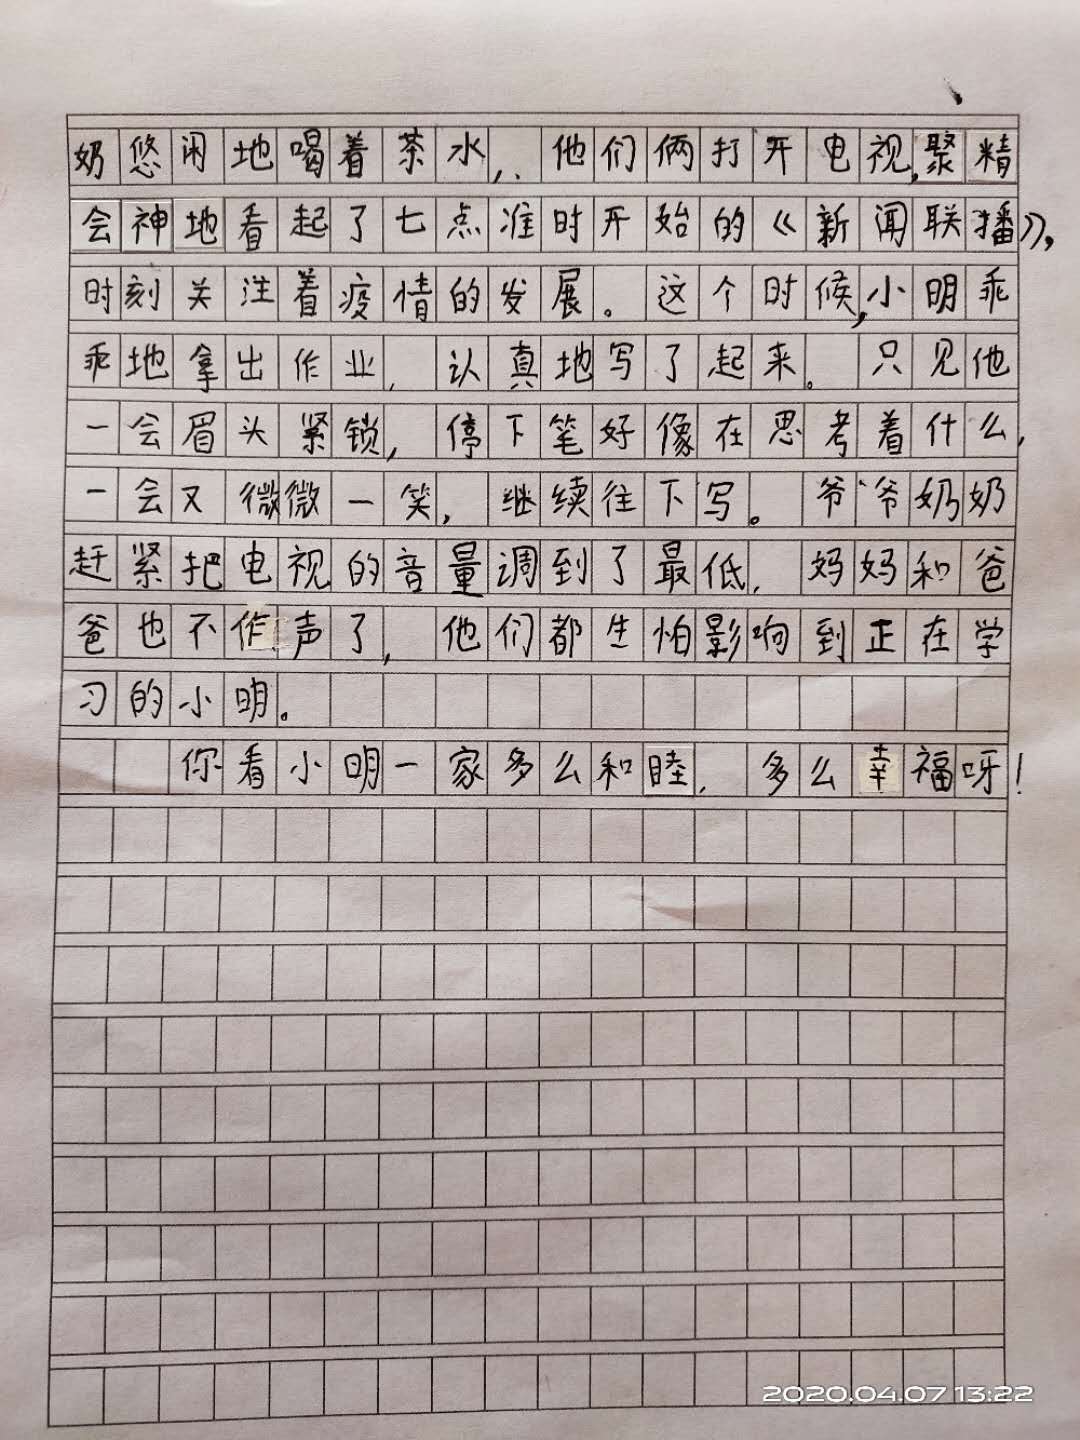 奶悠闲地喝着茶水,他们俩打开电视,聚精
会神地看起了七点准时开始的《新闻联播》,
时刻关注着疫情的发展。这个时候,小明乖
乖地拿出作业,认真地写了起来。只见他
一会眉头紧锁,停下笔好像在思考着什么,
一会又微微一笑,继续往下写。爷爷奶奶
赶紧把电视的音量调到了最低,妈妈和爸
爸也不作声了,他们都生怕影响到正在学
习的小明。
你看小明一家多么和睦,多么幸福呀!
2020.04.07 13:22